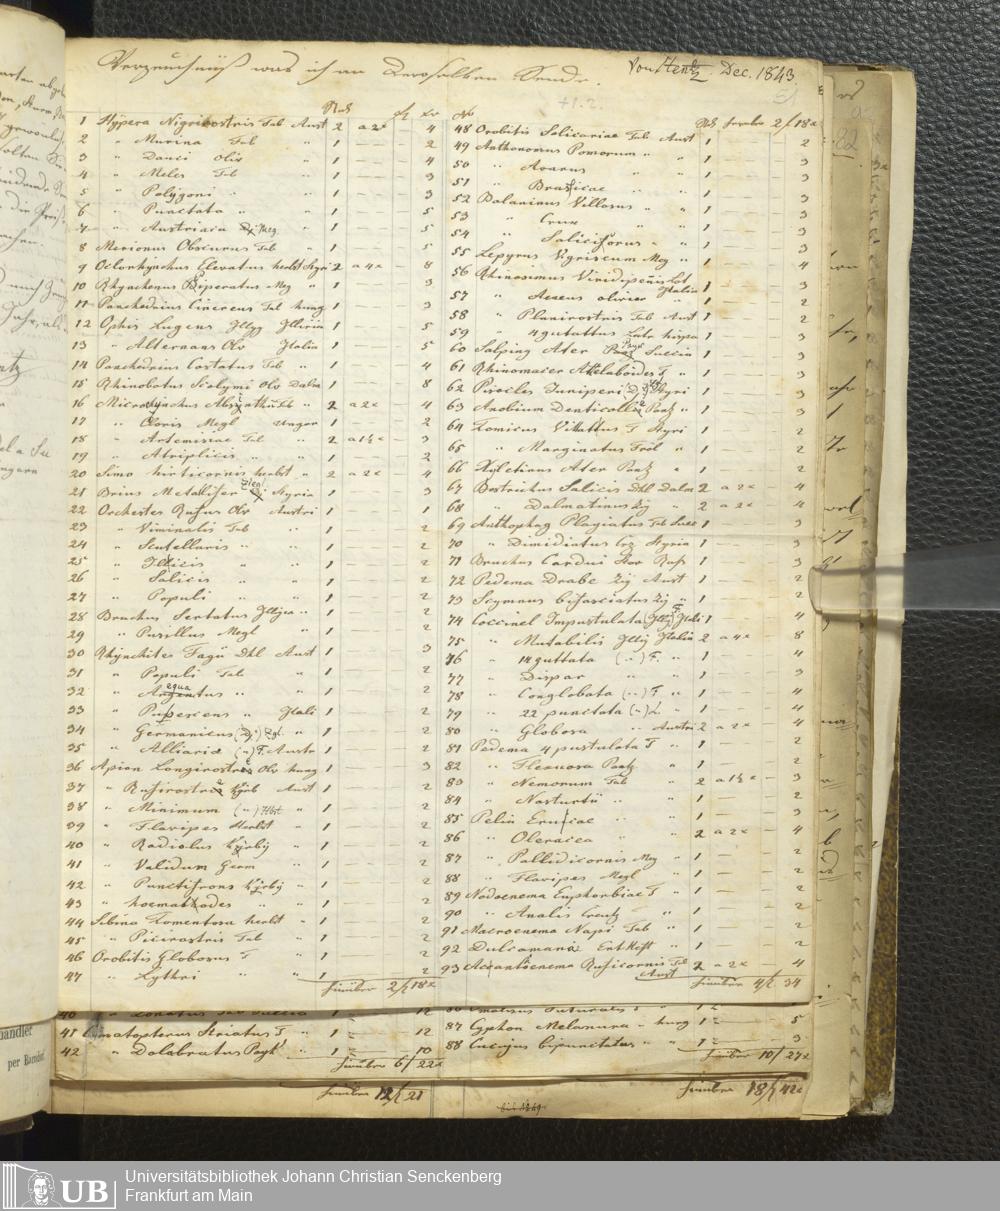 Verzeichniß was ich an Denselben Sende. Von Hentz. Dec. 1843
Stück
1 Hypera Nigrirostris Fab Aust 2 a 2x 4
2 " Murina Fab " 1 — — 2
3 " Dauci Oliv " 1 — — 4
4 " Meles Fab " 1 — — 3
5 " Polygoni " " 1 — — 3
6 " Punctata " " 1 — — 5
7 " Austriaca Meg " 1 — — 5
8 Merionus Obscurus Fab " 1 — — 5
9 Otiorhynchus Elevatus herbst Styri 2 a 4x — 8
10 Rhynchonus Bisperatus Meg " 1 — — 3
11 Panchedrius Cinereus Fab hung 1 — — 3
12 Ophis Lugens Illyri 1 — — 5
13 " Alternans Olv Italia 1 — — 5
14 Panchedrius Costatus Fab " 1 — — 4
15 Rhinobatus Scolymi Olv Dalm 1 — — 8
16 Microrhynchus Absynthii Fab " 2 a 2x — 4
17 " Coris Megl Ungar 1 — — 2
18 " Artemisiae Fab " 2 a 1½x — 3
19 " Atriplicis " " 1 — — 2
20 Simo hirticornis herbst " 2 a 2x — 4
21 Brius Metallifer Ziegl Styria 1 — — 3
22 Orchestes Rufus Olv Austri 1 — — 1
23 " Viminalis Fab " 1 — — 2
24 " Scutellaris " " 1 — — 2
25 " Ilicis " " 1 — — 2
26 " Salicis " " 1 — — 2
27 " Populi " " 1 — — 2
28 Bruchus Sertatus Illyca " 1 — — 2
29 " Pusillus Megl " 1 — — 2
30 Rhynchites Fagü Dhl Aust 1 — — 3
31 " Populi Fab " 1 — — 2
32 " Aequatus " " 1 — — 2
33 " Pubescens " Itali 1 — — 2
34 " Germanicus Zgl. " 1 — — 2
35 " Alliaria (") F. Austr 1 — — 2
36 Apion Longirostre Olv hung 1 — — 3
37 " Rufirostre Kirb Aust 1 — — 2
38 " Minimum (") Hbst " 1 — — 2
39 " Flavipes Herbst " 1 — — 2
40 " Radiolus Kyrbÿ " 1 — — 2
41 " Validum Germ " 1 — — 2
42 " Punctifrons Kyrbÿ " 1 — — 2
43 " hoematodes " " 1 — — 2
44 Sibina Tomentosa herbst " 1 — — 2
45 " Picirostris Fab " 1 — — 2
46 Orobitis Globosus F " 1 — — 2
47 " Lythri " " 1 — — 2
hinüber 2/ 18x
No Stk hinüber 2/ 18x
48 Orobitis Salicariae Fab Aust 1 — — 2
49 Anthonomus Pomorum " " 1 — — 3
50 " Avarus " " 1 — — 3
51 " Brassicae " " 1 — — 3
52 Balaninus Villosus " " 1 — — 3
53 " Crux " " 1 — — 3
54 " Saliciforus " " 1 — — 3
55 Lepyrus Vigriscum Meg " 1 — — 4
56 Rhinosimus Viridipennis Lat 1 — — 3
57 " Aeneus olivier Italia 1 — — 2
58 " Planirostris Fab Aust 1 — — 2
59 " 4 gutattus Latr hispa 1 — — 3
60 Salping Ater Payk Suecia 1 — — 3
61 Rhinomacer Attelaboides F " 1 — — 3
62 Pissoles Juniperi Styri 1 — — 3
63 Anobium Denticolle Panz " 1 — — 3
64 Tomicus Vittattus F Styri 1 — — 2
65 " Marginatus Fröl " 1 — — 2
66 Xyletinus Ater Panz " 1 — — 2
67 Bostrichus Salicis Dhl Dalm 2 a 2x — 4
68 " Dalmatinus Zÿ " 2 a 2x — 4
69 Anthophag Plagiatus Fab Suec 1 — — 3
70 " Dimidiatus Styria 1 — — 3
71 Bruchus Cardui Stev Russ 1 — — 3
72 Pedema Drabe Zÿ Aust 1 — — 2
73 Scymnus bifasciatus Zÿ " 1 — — 2
74 Coccinel Impustulata Illig F. Itali 1 — — 4
75 " Mutabilis Illig Italia 2 a 4x — 8
76 " 14 guttata (") F. " 1 — — 4
77 " Dispar " " 1 — — 3
78 " Conglobata (") F. " 1 — — 4
79 " 22 punctata (") L " 1 — — 4
80 " Globosa " Austri 2 a 2x — 4
81 Pedema 4 pustulata F " 1 — — 2
82 " Flexuosa Panz " 1 — — 2
83 " Nemorum Fab " 2 a 1½x — 3
84 " Nasturtii " " 1 — — 2
85 Pelia Eruciae " " 1 — — 3
86 " Oleracea " 2 a 2x — 4
87 " Pallidicornis Meg " 1 — — 2
88 " Flavipes Megl " 1 — — 2
89 Nodoenema Euphorbiae F " 1 — — 2
90 " Analis Creutz " 1 — — 2
91 Macroenema Napi Fab " 1 — — 2
92 " Dulcamara Ent.Heft " 1 — — 2
93 Acrantoenema Ruficornis Fab Aust 2 a 2x — 4
hinüber 4/ 34
41 Comatopterus Striatus F " 1 — 12
42 " Dolabratus Payk " 1 — 10
hinüber 6/ 22x
87 Cyphon Melanura — hung 1 — 5
88 Cucujus bipunctatus " " 1 — 3
hinüber 10/ 27x
hinüber 12/ 21
hinüber 18/ 42x
handler
Universitätsbibliothek Johann Christian Senckenberg
Frankfurt am Main
UB